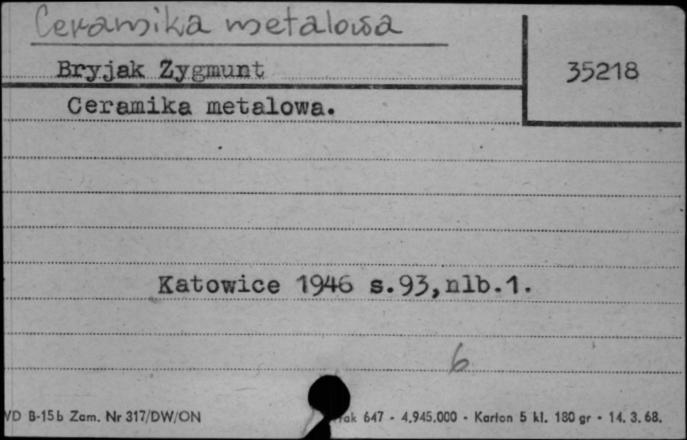 Ceramika metalowa
Bryjak Zygmunt
35218
Ceramika metalowa.
Katowice 1946 s.93,nlb.1.
6
WD B-15b Zam. Nr 317/DW/ON
647 - 4.945.000 - Karton 5 kl. 180 gr - 14. 3. 68.